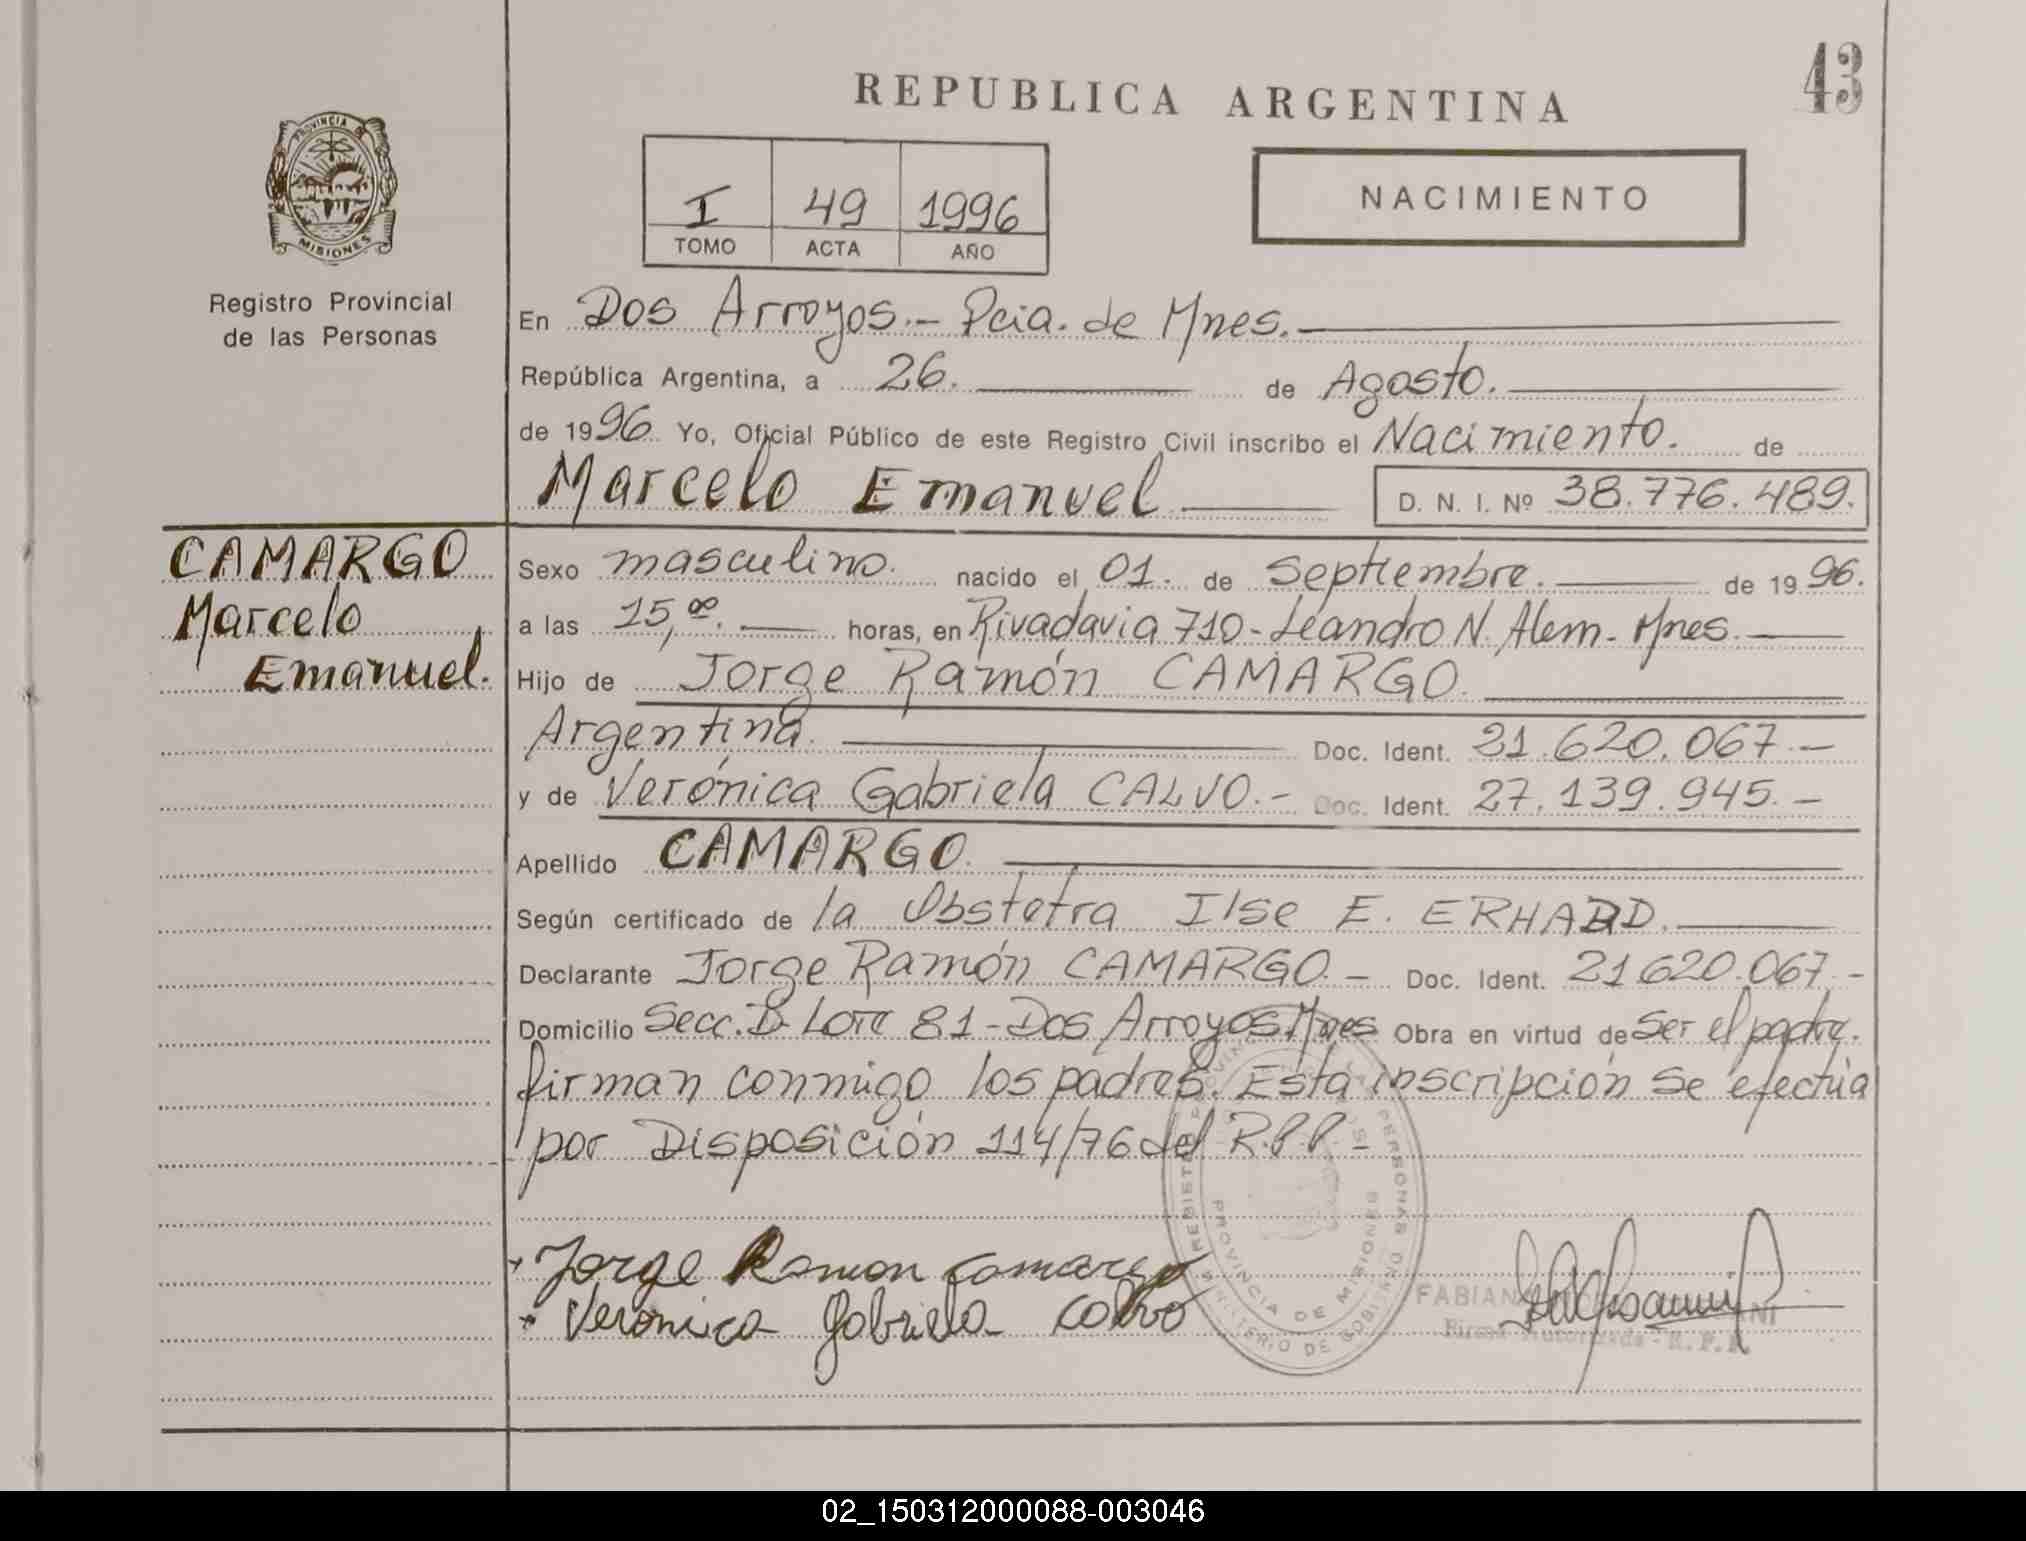 43
REPUBLICA ARGENTINA
PROVINCIA DE
MISIONES
I 49 1996
TOMO ACTA AÑO
NACIMIENTO
Registro Provincial
de las Personas
En Dos Arroyos.- Pcia. de Mnes.
República Argentina, a 26. de Agosto.
de 1996 Yo, Oficial Público de este Registro Civil inscribo el Nacimiento. de
Marcelo Emanuel D. N. I. Nº 38.776.489.
CAMARGO
Marcelo
Emanuel.
Sexo masculino. nacido el 01. de Septiembre. de 1996.
a las 15,00. horas, en Rivadavia 710-Leandro N. Alem-Mnes.
Hijo de Jorge Ramón CAMARGO.
Argentina. Doc. Ident. 21.620.067.-
y de Verónica Gabriela CALVO.- Doc. Ident. 27.139.945.-
Apellido CAMARGO.
Según certificado de la Obstetra Ilse E.
Declarante Jorge Ramón CAMARGO.- Doc. Ident. 21620.067.-
Domicilio Secc. B- Lote 81-Dos Arroyos.Mnes. Obra en virtud de Ser el padre.
firman conmigo los padres. Esta inscripción se efectúa
por Disposición 114/76 del R.P.P.-
Jorge Ramon Camargo
Veronica Gabriela Calvo
PROVINCIA DE MISIONES
MINISTERIO DE GOBIERNO
FABIANA
Firma Autorizada - R. P. P.
02_150312000088-003046